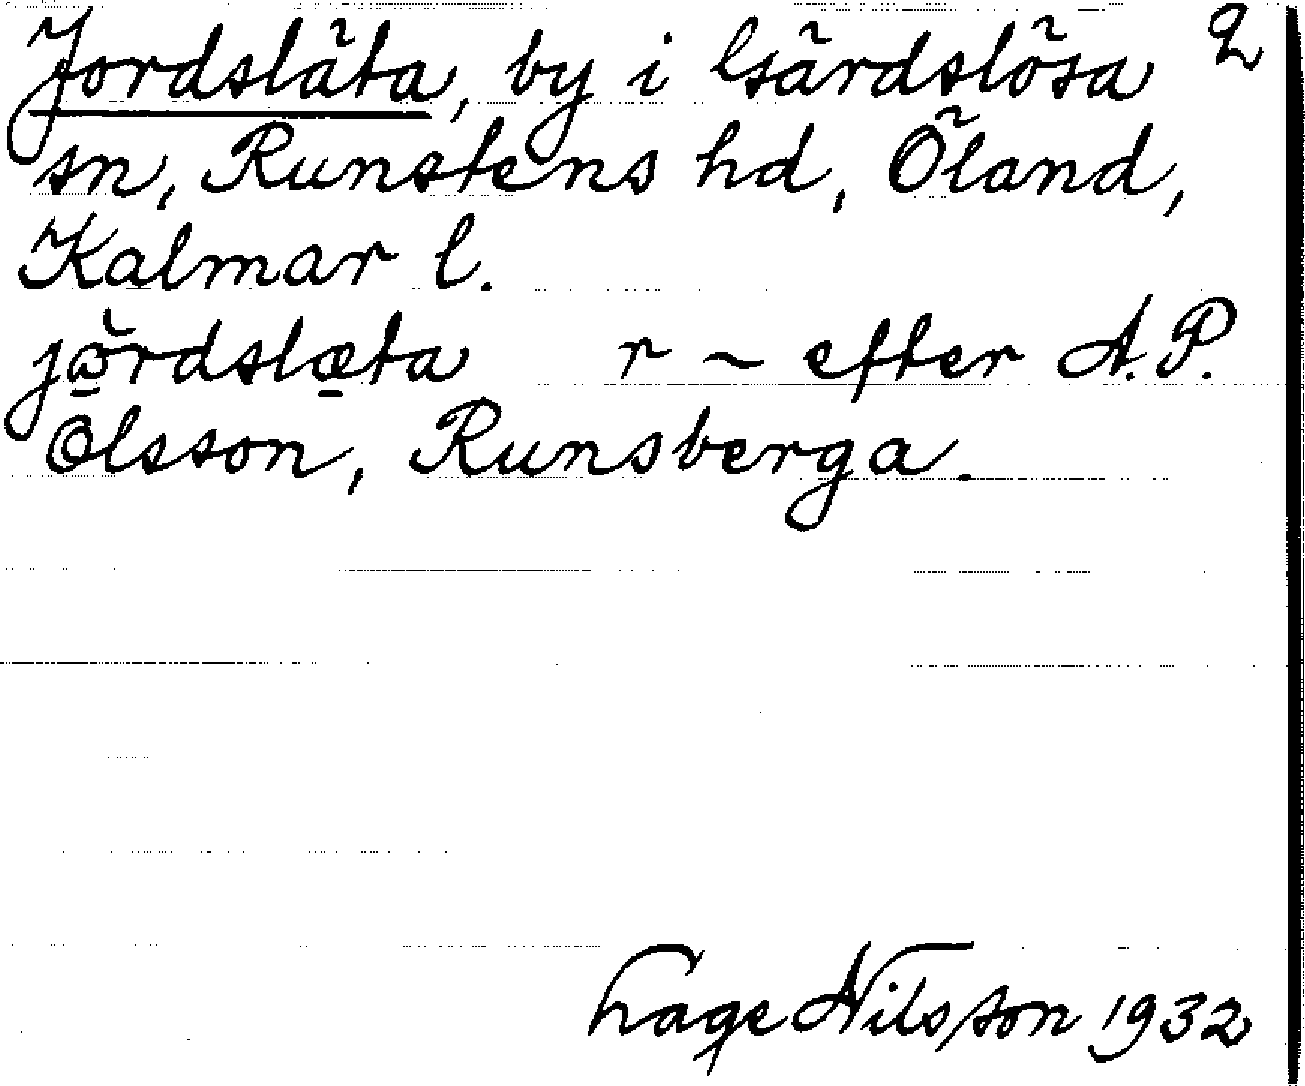 Jordsläta, by i Gärdslösa 2
sn, Runstens hd, Öland,
Kalmar l.
jo̠̊̀rdslæ̠ta r ~ efter A. P.
Olsson, Runsberga.
Lage Nilsson 1932